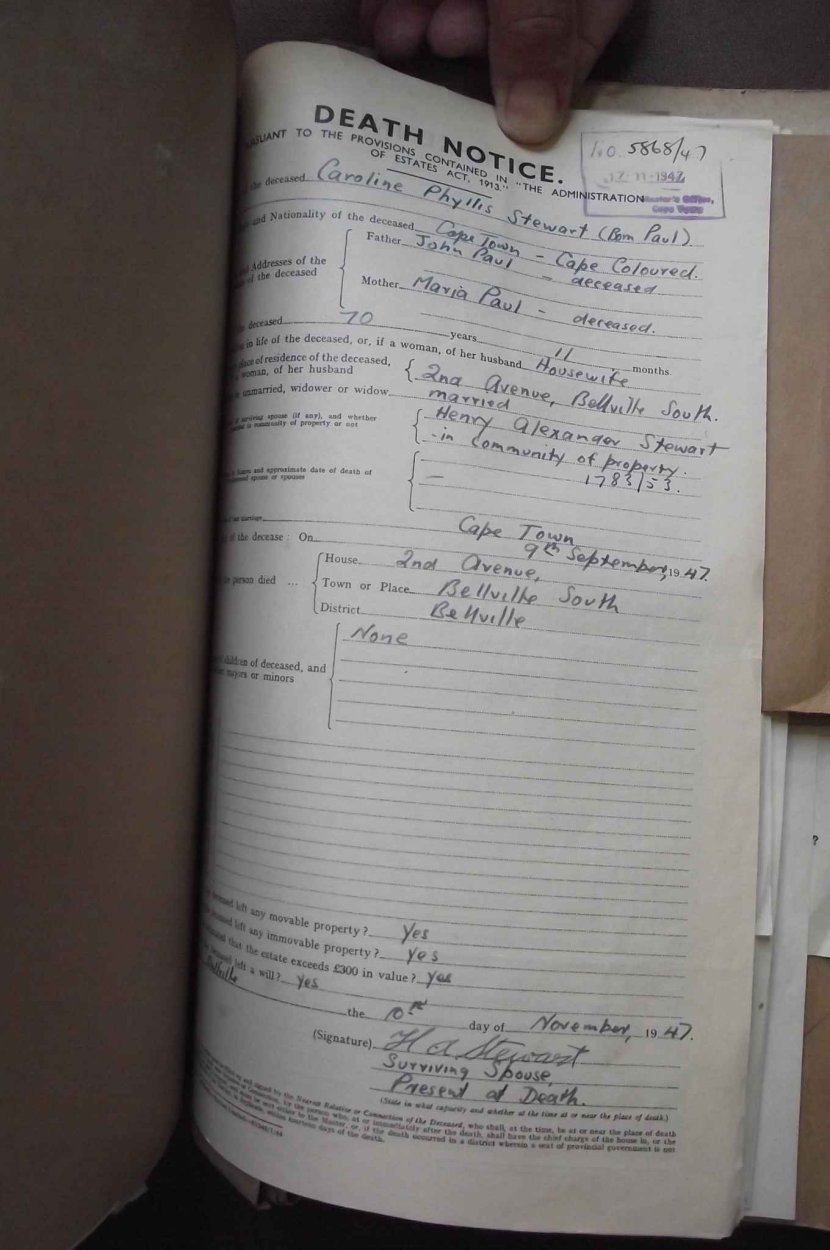 DEATH NOTICE.
PURSUANT TO THE PROVISIONS CONTAINED IN "THE ADMINISTRATION
OF ESTATES ACT, 1913."
No. 5868/47
12-11-1947
Master's Office,
Cape Town
the deceased Caroline Phyllis Stewart (Born Paul).
and Nationality of the deceased Cape Town - Cape Coloured.
Addresses of the
of the deceased
Father John Paul - deceased
Mother Maria Paul - deceased.
deceased 70 years 11 months
in life of the deceased, or, if a woman, of her husband Housewife
place of residence of the deceased,
woman, of her husband
2nd Avenue, Bellville South.
unmarried, widower or widow married
surviving spouse (if any), and whether
in community of property or not
Henry Alexander Stewart
- in community of property.
1783/53.
Names and approximate date of death of
spouse or spouses
-
of marriage Cape Town
of the decease: On 9th September, 1947.
person died ...
House 2nd Avenue,
Town or Place Bellville South
District Bellville
children of deceased, and
majors or minors
None
deceased left any movable property? Yes
deceased left any immovable property? Yes
estimated that the estate exceeds £300 in value? Yes
deceased left a will? Yes
Bellville the 10th day of November, 1947.
(Signature) H A Stewart
Surviving Spouse,
Present at Death.
(State in what capacity and whether at the time at or near the place of death.)
signed by the Nearest Relative or Connection of the Deceased, who shall, at the time, be at or near the place of death
Connection, by the person who, at or immediately after the death, shall have the chief charge of the house in, or the
to the Master, or, if the death occurred in a district wherein a seat of provincial government is not
within fourteen days of the death.
?